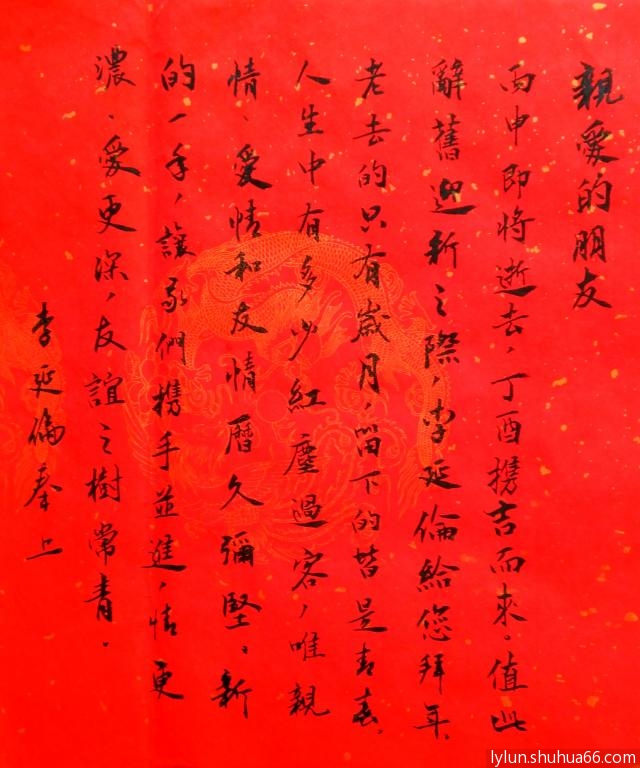 親愛的朋友
丙申即將逝去，丁酉携吉而來。值此
辭舊迎新之際，李延倫給您拜年。
老去的只有歲月，留下的皆是青春。
人生中有多少紅塵過客，唯親
情、愛情和友情曆久彌堅。新
的一年，讓我們携手並進，情更
濃、愛更深，友誼之樹常青。
李延倫奉上
lylun.shuhua66.com